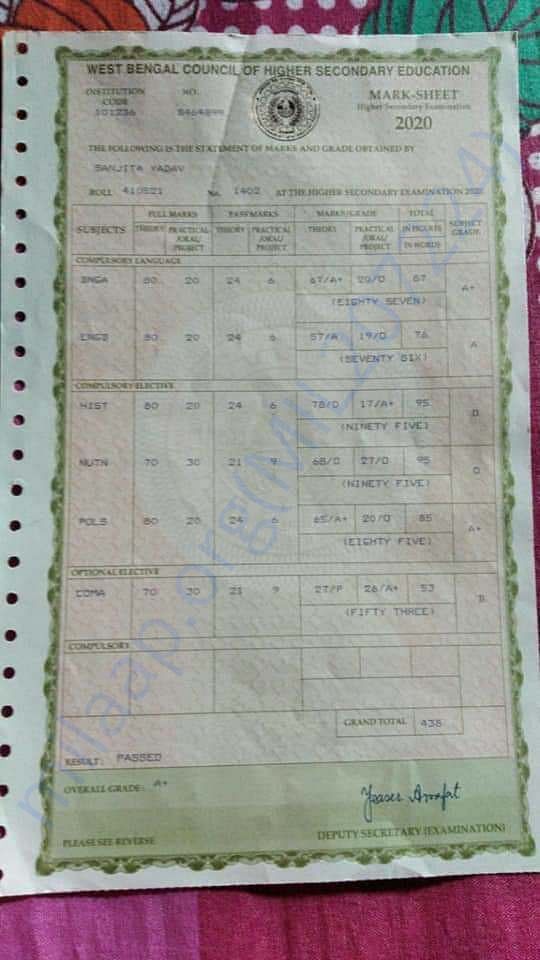 WEST BENGAL COUNCIL OF HIGHER SECONDARY EDUCATION
INSTITUTION CODE NO. MARK-SHEET
101236 Higher Secondary Examination
2020
THE FOLLOWING IS THE STATEMENT OF MARKS AND GRADE OBTAINED BY
SANJITA YADAV
ROLL 410521 No. 1402 AT THE HIGHER SECONDARY EXAMINATION 2020
SUBJECTS FULL MARKS PASS MARKS MARKS/GRADE TOTAL SUBJECT GRADE
THEORY PRACTICAL /ORAL/ PROJECT THEORY PRACTICAL /ORAL/ PROJECT THEORY PRACTICAL /ORAL/ PROJECT IN FIGURES IN WORDS
COMPULSORY LANGUAGE
BNGA 80 20 24 6 67/A+ 20/O 87 A+
(EIGHTY SEVEN)
ENGB 80 20 24 6 57/A 19/O 76 A
(SEVENTY SIX)
COMPULSORY ELECTIVE
HIST 80 20 24 6 78/O 17/A+ 95 O
(NINETY FIVE)
NUTN 70 30 21 9 68/O 27/O 95 O
(NINETY FIVE)
POLS 80 20 24 6 65/A+ 20/O 85 A+
(EIGHTY FIVE)
OPTIONAL ELECTIVE
COMA 70 30 21 9 27/P 26/A+ 53 B
(FIFTY THREE)
COMPULSORY
GRAND TOTAL 438
RESULT: PASSED
OVERALL GRADE: A+
Yeaser Arafat
PLEASE SEE REVERSE DEPUTY SECRETARY (EXAMINATION)